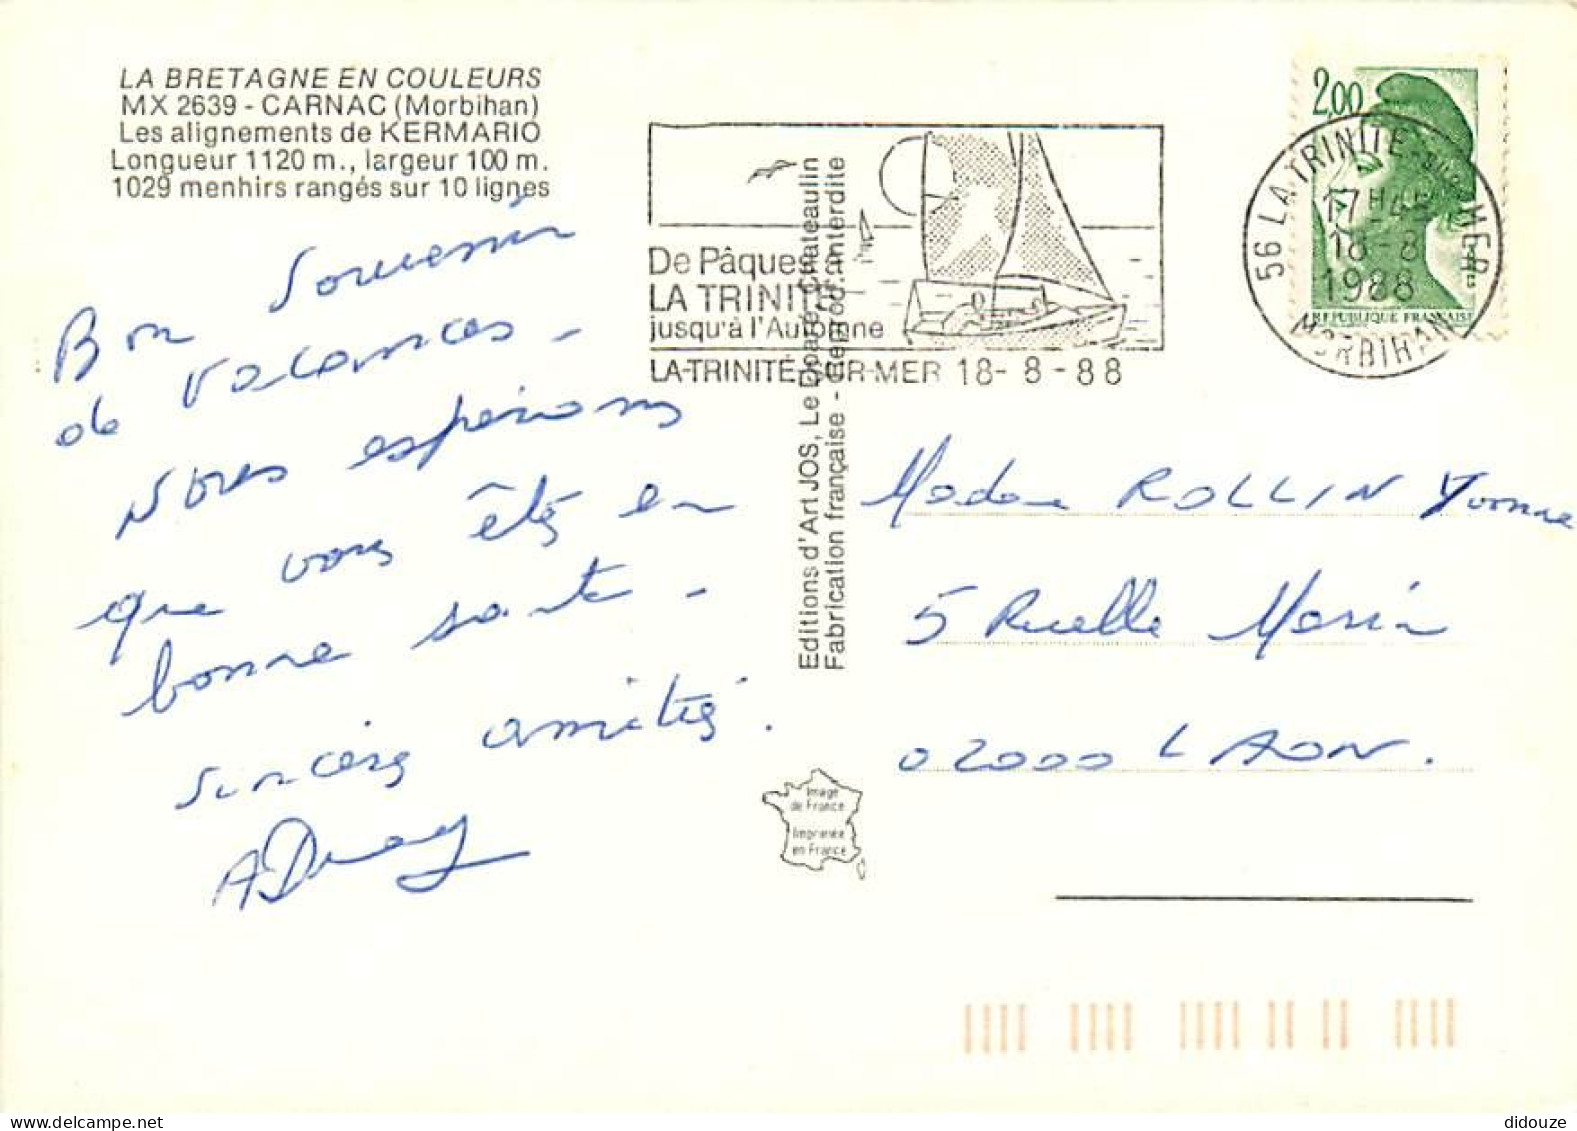 LA BRETAGNE EN COULEURS
MX 2639 - CARNAC (Morbihan)
Les alignements de KERMARIO
Longueur 1120 m., largeur 100 m.
1029 menhirs rangés sur 10 lignes
Bon Souvenir
de Vacances -
Nous espérons
que vous êtes en
bonne santé -
sincères amitiés.
De Pâques à
LA TRINITÉ
jusqu'à l'Automne
LA-TRINITÉ-SUR-MER 18-8-88
Editions d'Art JOS, Le Doaré, Chateaulin
Fabrication française - Reprod. interdite
Image
de France
Imprimée
en France
2,00
REPUBLIQUE FRANCAISE
56 LA TRINITE-SUR-MER
17H45
18-8
1988
MORBIHAN
Madame ROLLIN Yvonne
5 Ruelle Morin
02000 LAON.
didouze